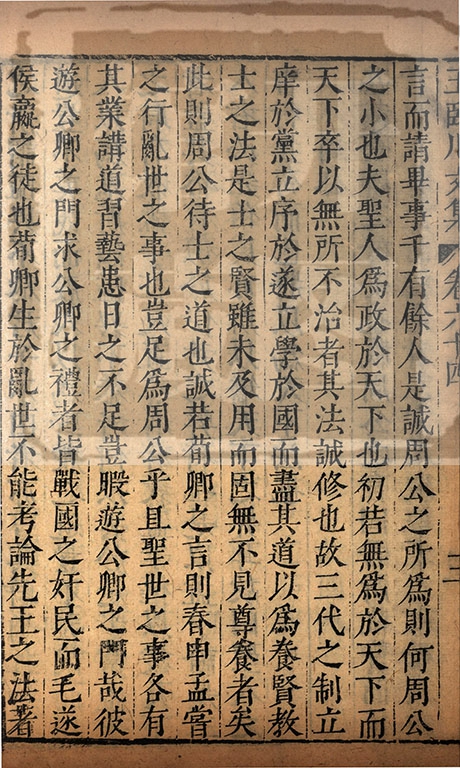 王臨川文集 卷六十四 三
言而請畢事千有餘人是誠周公之所爲則何周公
之小也夫聖人爲政於天下也初若無爲於天下而
天下卒以無所不治者其法誠修也故三代之制立
庠於黨立序於遂立學於國而盡其道以爲養賢教
士之法是士之賢雖未及用而固無不見尊養者矣
此則周公待士之道也誠若荀卿之言則春申孟嘗
之行亂世之事也豈足爲周公乎且聖世之事各有
其業講道習藝患日之不足豈暇遊公卿之門哉彼
遊公卿之門求公卿之禮者皆戰國之奸民而毛遂
侯嬴之徒也荀卿生於亂世不能考論先王之法著